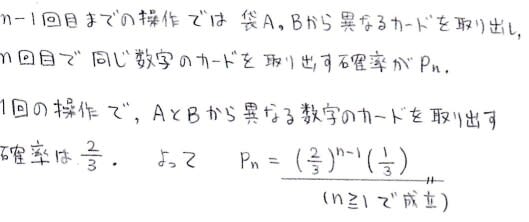 n-1回目までの操作では 袋A,Bから異なるカードを取り出し,
n回目で同じ数字のカードを取り出す確率がPn.
1回の操作で, AとBから異なる数字のカードを取り出す
確率は 2/3. よって Pn = (2/3)^{n-1} (1/3)
(n≧1で成立)